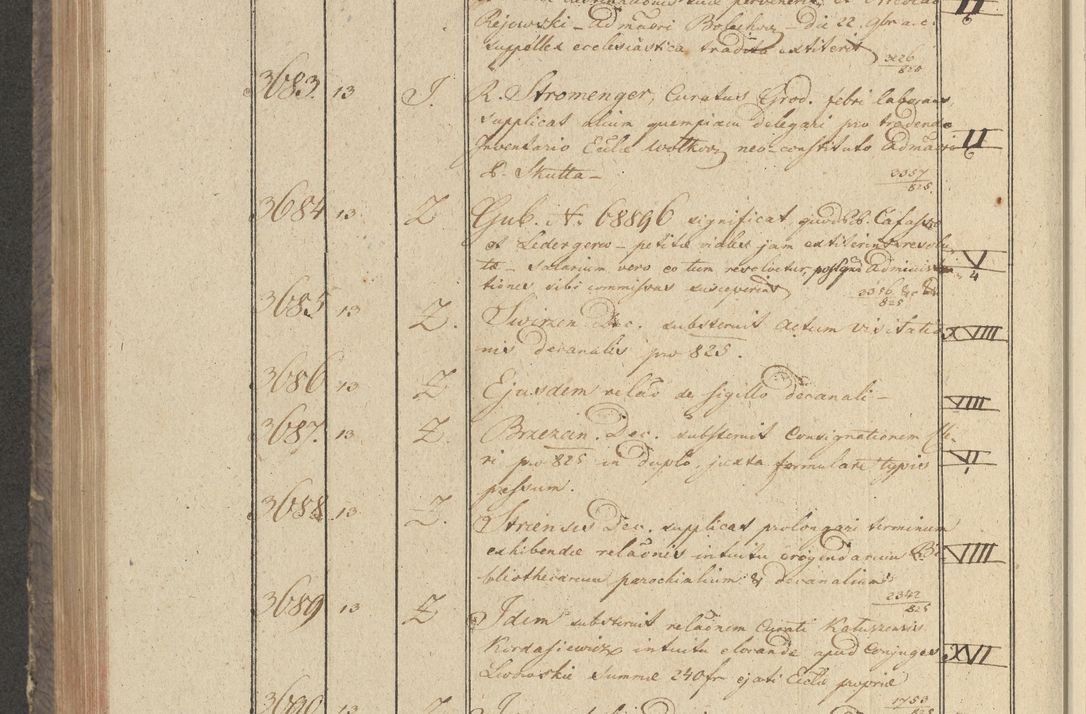 Rejowski – Admãtri Bolechow – Die 22. 9br. a. c.
suppellex ecclesiastica tradita extiterit
3226/825
3683. 13 J. R. Stromenger, Curatus Grod. febri laborans,
supplicat alium quempiam delegari pro tradendo
Inventario Eccliæ Wolkow neo-constituto Admãtri
II
P. Skutta –
3357/825.
3684 13. Z Gub. N. 68896 significat, quod Bb. Cafasso
et Ledergerw – petitæ viales jam extiterint resolu
V
4
tæ – salarium vero eo tum resolvetur, postquam administra
tiones sibi commissas susceperint
3356/825
3685 13 Z. Swirzen Dec. substernit actum visitatio
XVIII
nis decanalis pro 825.
3686 13 Z Ejusdem relaõ de sigillo decanali –
VIII
3687. 13. Z. Brzezan. Dec. substernit Consignationem Cle-
ri pro 825 in duplo, juxta formulare typis
VI
pressum.
3688 13. Z. Striensis Dec. supplicat prolongari terminum
exhibendæ relaõnis intuitu erigendarum Bi
VIII
bliothecarum parochialium & decanalium
2342/825
3689 13 Z Idem substernit relaõnem Curati Katuszensis
Kordasiewicz intuitu elocandæ apud Conjuges
XVI
Lwowskie Summæ 240 fr ejati Eccliæ propriæ
1753/825
3690 13 Z